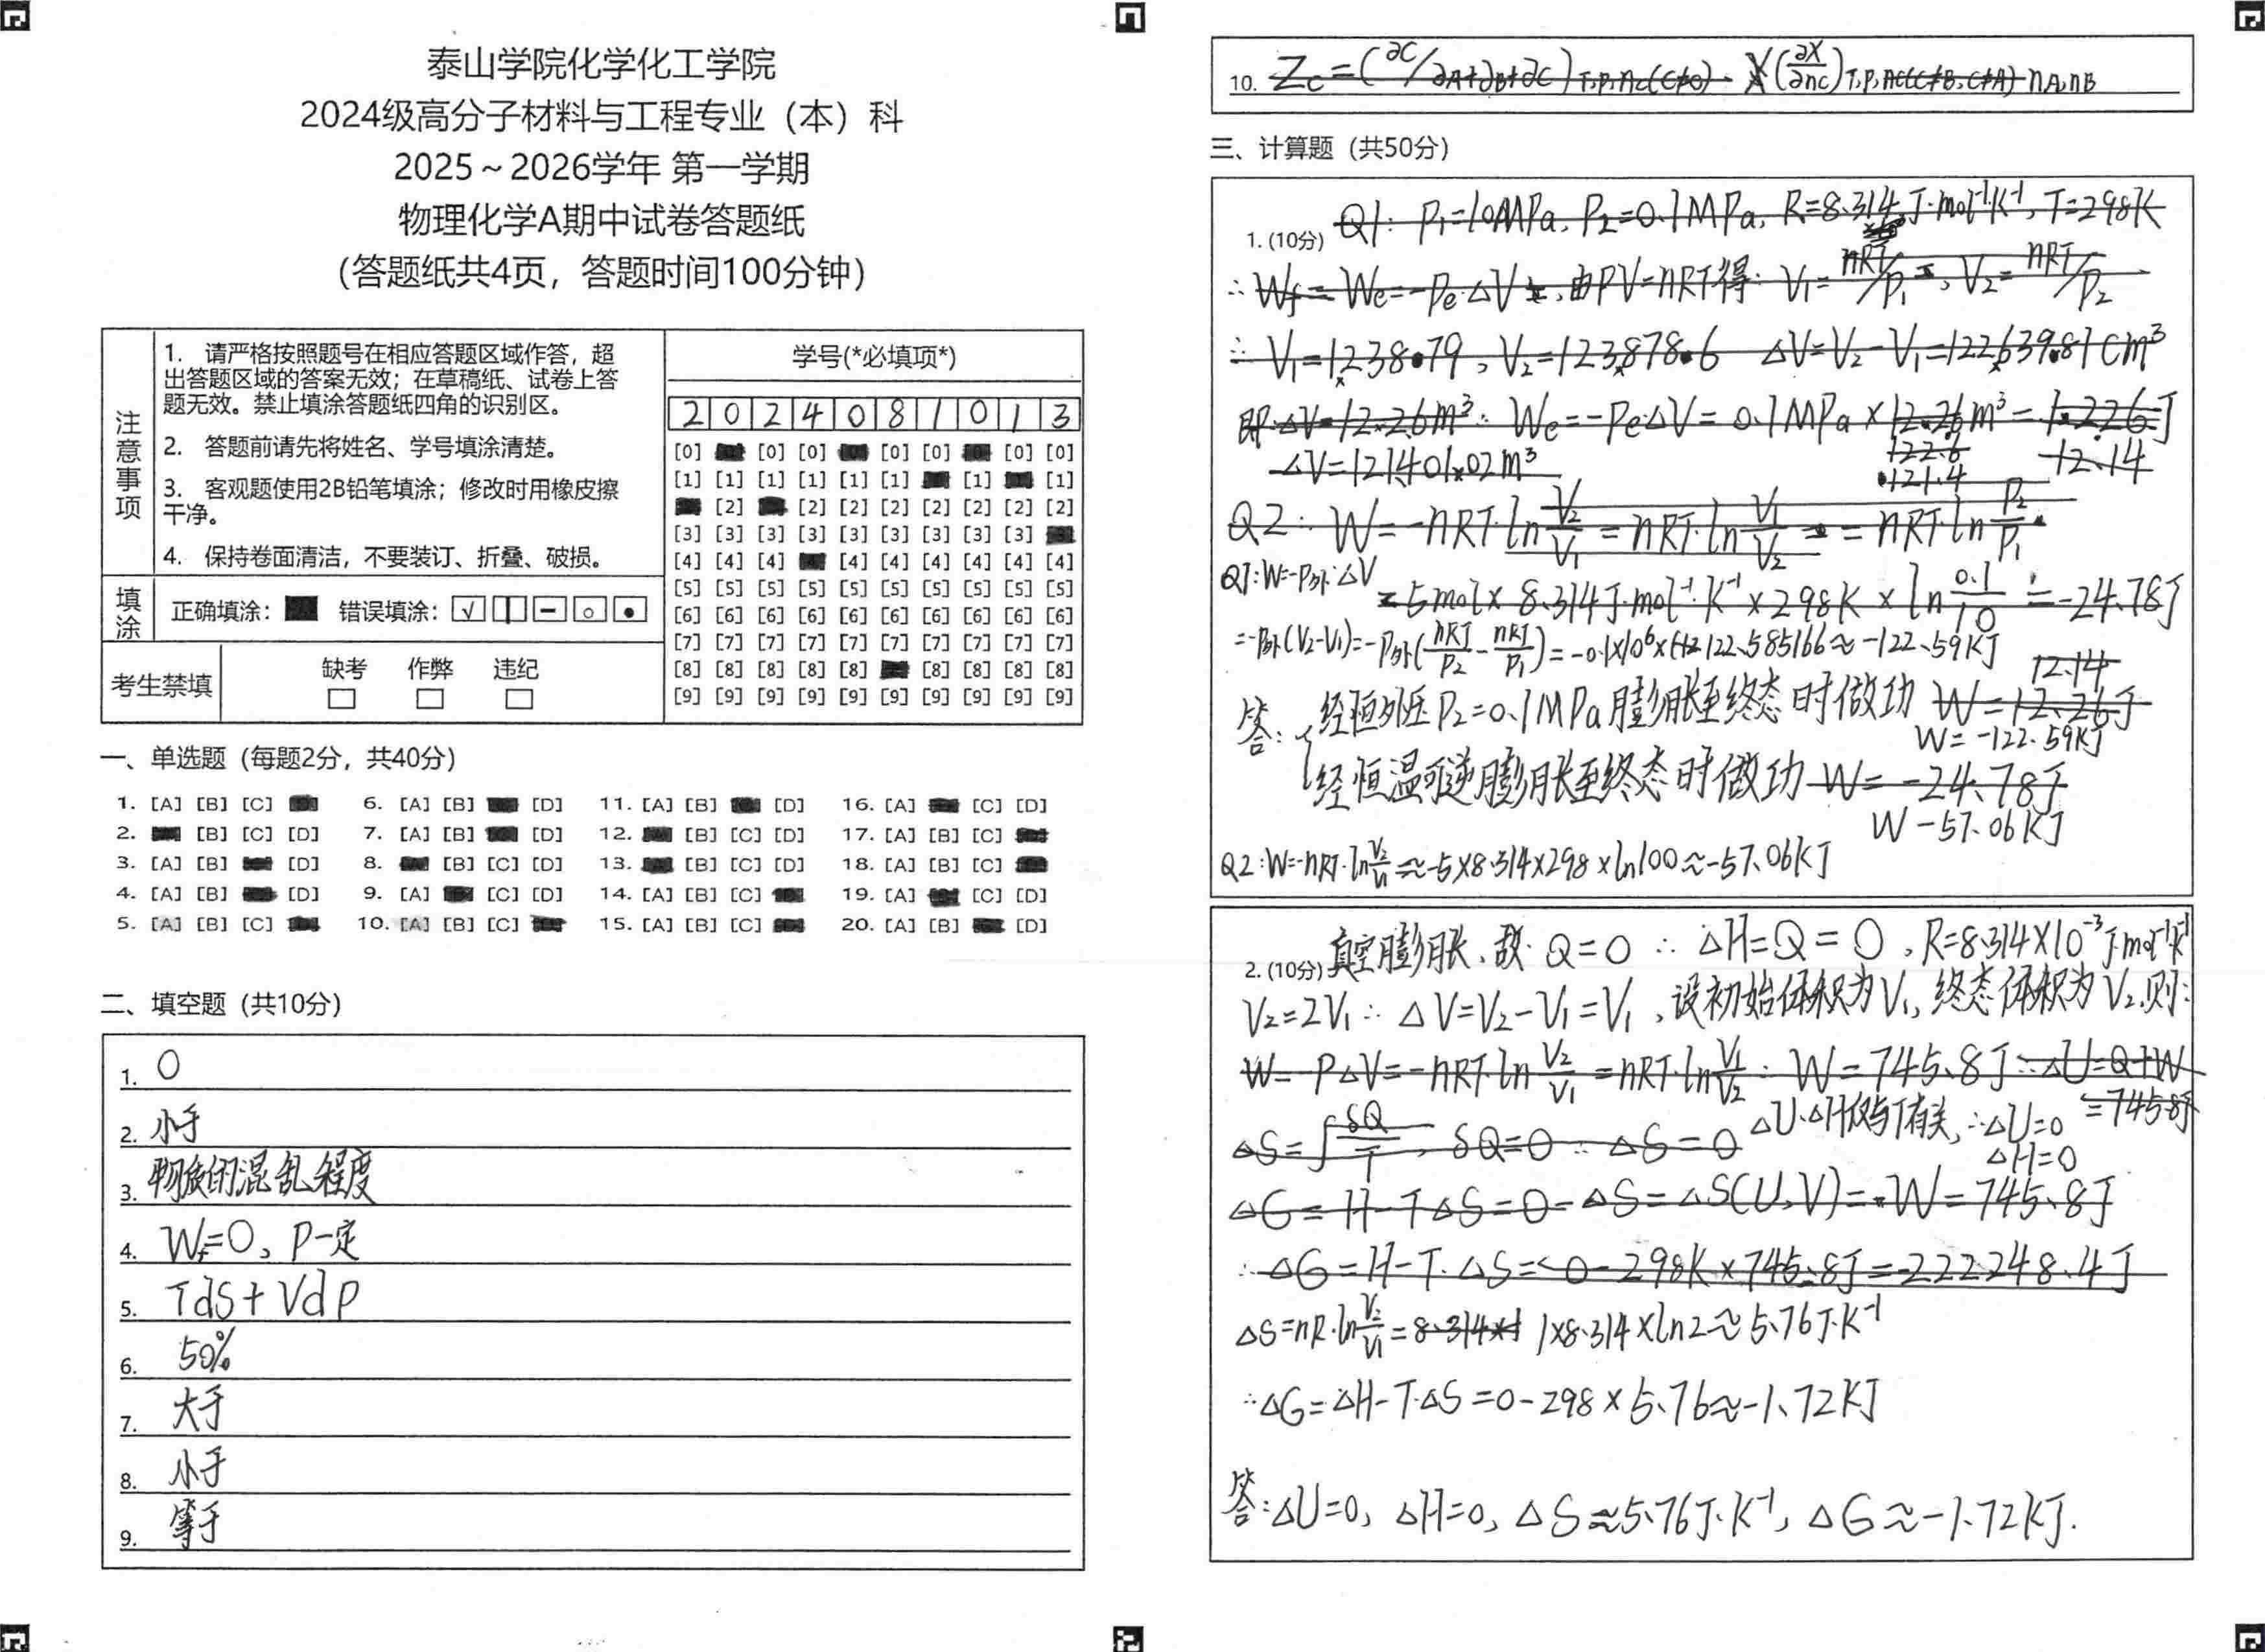 泰山学院化学化工学院
2024级高分子材料与工程专业（本）科
2025～2026学年 第一学期
物理化学A期中试卷答题纸
（答题纸共4页，答题时间100分钟）
注意事项
1. 请严格按照题号在相应答题区域作答，超出答题区域的答案无效；在草稿纸、试卷上答题无效。禁止填涂答题纸四角的识别区。
2. 答题前请先将姓名、学号填涂清楚。
3. 客观题使用2B铅笔填涂；修改时用橡皮擦干净。
4. 保持卷面清洁，不要装订、折叠、破损。
填涂 正确填涂： 错误填涂：
考生禁填 缺考 作弊 违纪
学号(*必填项*)
2 0 2 4 0 8 1 0 1 3
[0] [0] [0] [0] [0] [0] [0]
[1] [1] [1] [1] [1] [1] [1] [1]
[2] [2] [2] [2] [2] [2] [2] [2]
[3] [3] [3] [3] [3] [3] [3] [3] [3]
[4] [4] [4] [4] [4] [4] [4] [4] [4]
[5] [5] [5] [5] [5] [5] [5] [5] [5] [5]
[6] [6] [6] [6] [6] [6] [6] [6] [6] [6]
[7] [7] [7] [7] [7] [7] [7] [7] [7] [7]
[8] [8] [8] [8] [8] [8] [8] [8] [8]
[9] [9] [9] [9] [9] [9] [9] [9] [9] [9]
一、单选题（每题2分，共40分）
1. [A] [B] [C] 6. [A] [B] [D] 11. [A] [B] [D] 16. [A] [C] [D]
2. [B] [C] [D] 7. [A] [B] [D] 12. [B] [C] [D] 17. [A] [B] [C]
3. [A] [B] [D] 8. [B] [C] [D] 13. [B] [C] [D] 18. [A] [B] [C]
4. [A] [B] [D] 9. [A] [C] [D] 14. [A] [B] [C] 19. [A] [C] [D]
5. [A] [B] [C] 10. [A] [B] [C] 15. [A] [B] [C] 20. [A] [B] [D]
二、填空题（共10分）
1. 0
2. 小于
3. 物质的混乱程度
4. Wf=0、P一定
5. TdS+VdP
6. 50%
7. 大于
8. 小于
9. 等于
10. Zc=(∂C/∂A+∂B+∂C)T,P,nc(C≠0) - X(∂X/∂nc)T,P,nc(C≠B,C≠A) nA,nB
三、计算题（共50分）
1. (10分) Q1: P₁=10MPa, P₂=0.1MPa, R=8.314 J·mol⁻¹·K⁻¹, T=298K
∴ Wf=We=-Pe·ΔV, 由PV=nRT得: V₁=nRT/P₁, V₂=nRT/P₂
∴ V₁=1238.79, V₂=123878.6 ΔV=V₂-V₁=122639.81cm³
即:ΔV=12.26m³ ∴ We=-PeΔV=0.1MPa×12.26m³=1.226J
122.6
ΔV=121401.02m³ 121.4 12.14
Q2: W=-nRT·ln V₂/V₁=nRT·ln V₁/V₂=nRT·ln P₂/P₁
=5mol×8.314J·mol⁻¹·K⁻¹×298K×ln 0.1/10=-24.78J
Q1:W=-P外·ΔV
=-P外(V₂-V₁)=-P外(nRT/P₂-nRT/P₁)=-0.1×10⁶×122.585166≈-122.59KJ
答: 经恒外压P₂=0.1MPa膨胀至终态时做功 W=12.26J
12.14
W=-122.59KJ
经恒温可逆膨胀至终态时做功 W=-24.78J
W-57.06KJ
Q2:W=-nRT·ln V₂/V₁≈-5×8.314×298×ln100≈-57.06KJ
2. (10分) 真空膨胀、故 Q=0 ∴ ΔH=Q=0, R=8.314×10⁻³J·mol⁻¹·K⁻¹
V₂=2V₁ ∴ ΔV=V₂-V₁=V₁, 设初始体积为V₁, 终态体积为V₂,则:
W=-PΔV=-nRT·ln V₂/V₁=nRT·ln V₁/V₂ ∴ W=745.8J ∴ΔU=Q+W
=745.8J
ΔS=∫δQ/T, δQ=0 ∴ ΔS=0 ΔU、ΔH仅与T有关, ∴ΔU=0
ΔH=0
ΔG=H-TΔS=0-ΔS=ΔS(U,V)=W=745.8J
∴ΔG=H-T·ΔS=0-298K×745.8J=-222248.4J
ΔS=nR·ln V₂/V₁=8.314×1 1×8.314×ln2≈5.76J·K⁻¹
∴ΔG=ΔH-T·ΔS=0-298×5.76≈-1.72KJ
答:ΔU=0, ΔH=0, ΔS≈5.76J·K⁻¹, ΔG≈-1.72KJ.